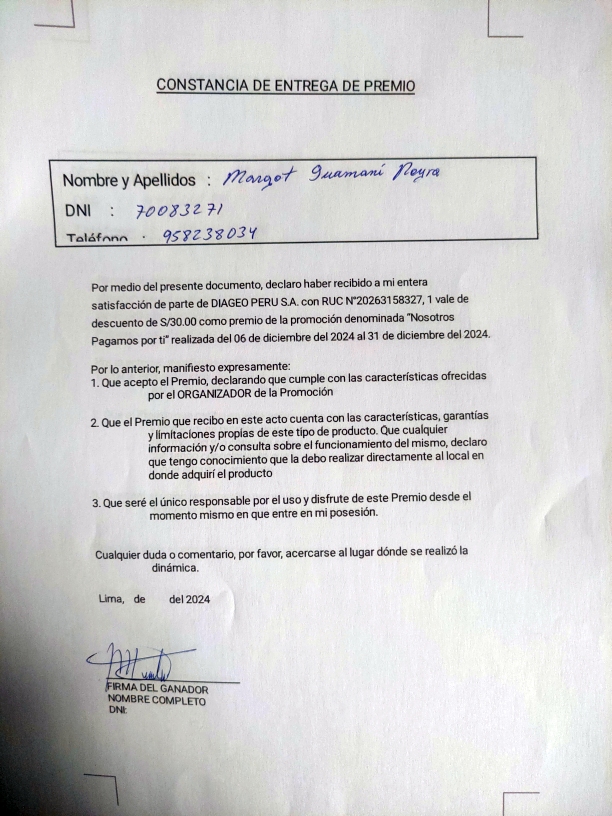 CONSTANCIA DE ENTREGA DE PREMIO
Nombre y Apellidos : Margot Guamaní Neyra
DNI : 70083271
Teléfono : 958238034
Por medio del presente documento, declaro haber recibido a mi entera
satisfacción de parte de DIAGEO PERU S.A. con RUC N°20263158327, 1 vale de
descuento de S/30.00 como premio de la promoción denominada "Nosotros
Pagamos por ti" realizada del 06 de diciembre del 2024 al 31 de diciembre del 2024.
Por lo anterior, manifiesto expresamente:
1. Que acepto el Premio, declarando que cumple con las características ofrecidas
por el ORGANIZADOR de la Promoción
2. Que el Premio que recibo en este acto cuenta con las características, garantías
y limitaciones propias de este tipo de producto. Que cualquier
información y/o consulta sobre el funcionamiento del mismo, declaro
que tengo conocimiento que la debo realizar directamente al local en
donde adquirí el producto
3. Que seré el único responsable por el uso y disfrute de este Premio desde el
momento mismo en que entre en mi posesión.
Cualquier duda o comentario, por favor, acercarse al lugar dónde se realizó la
dinámica.
Lima, de del 2024
FIRMA DEL GANADOR
NOMBRE COMPLETO
DNI: